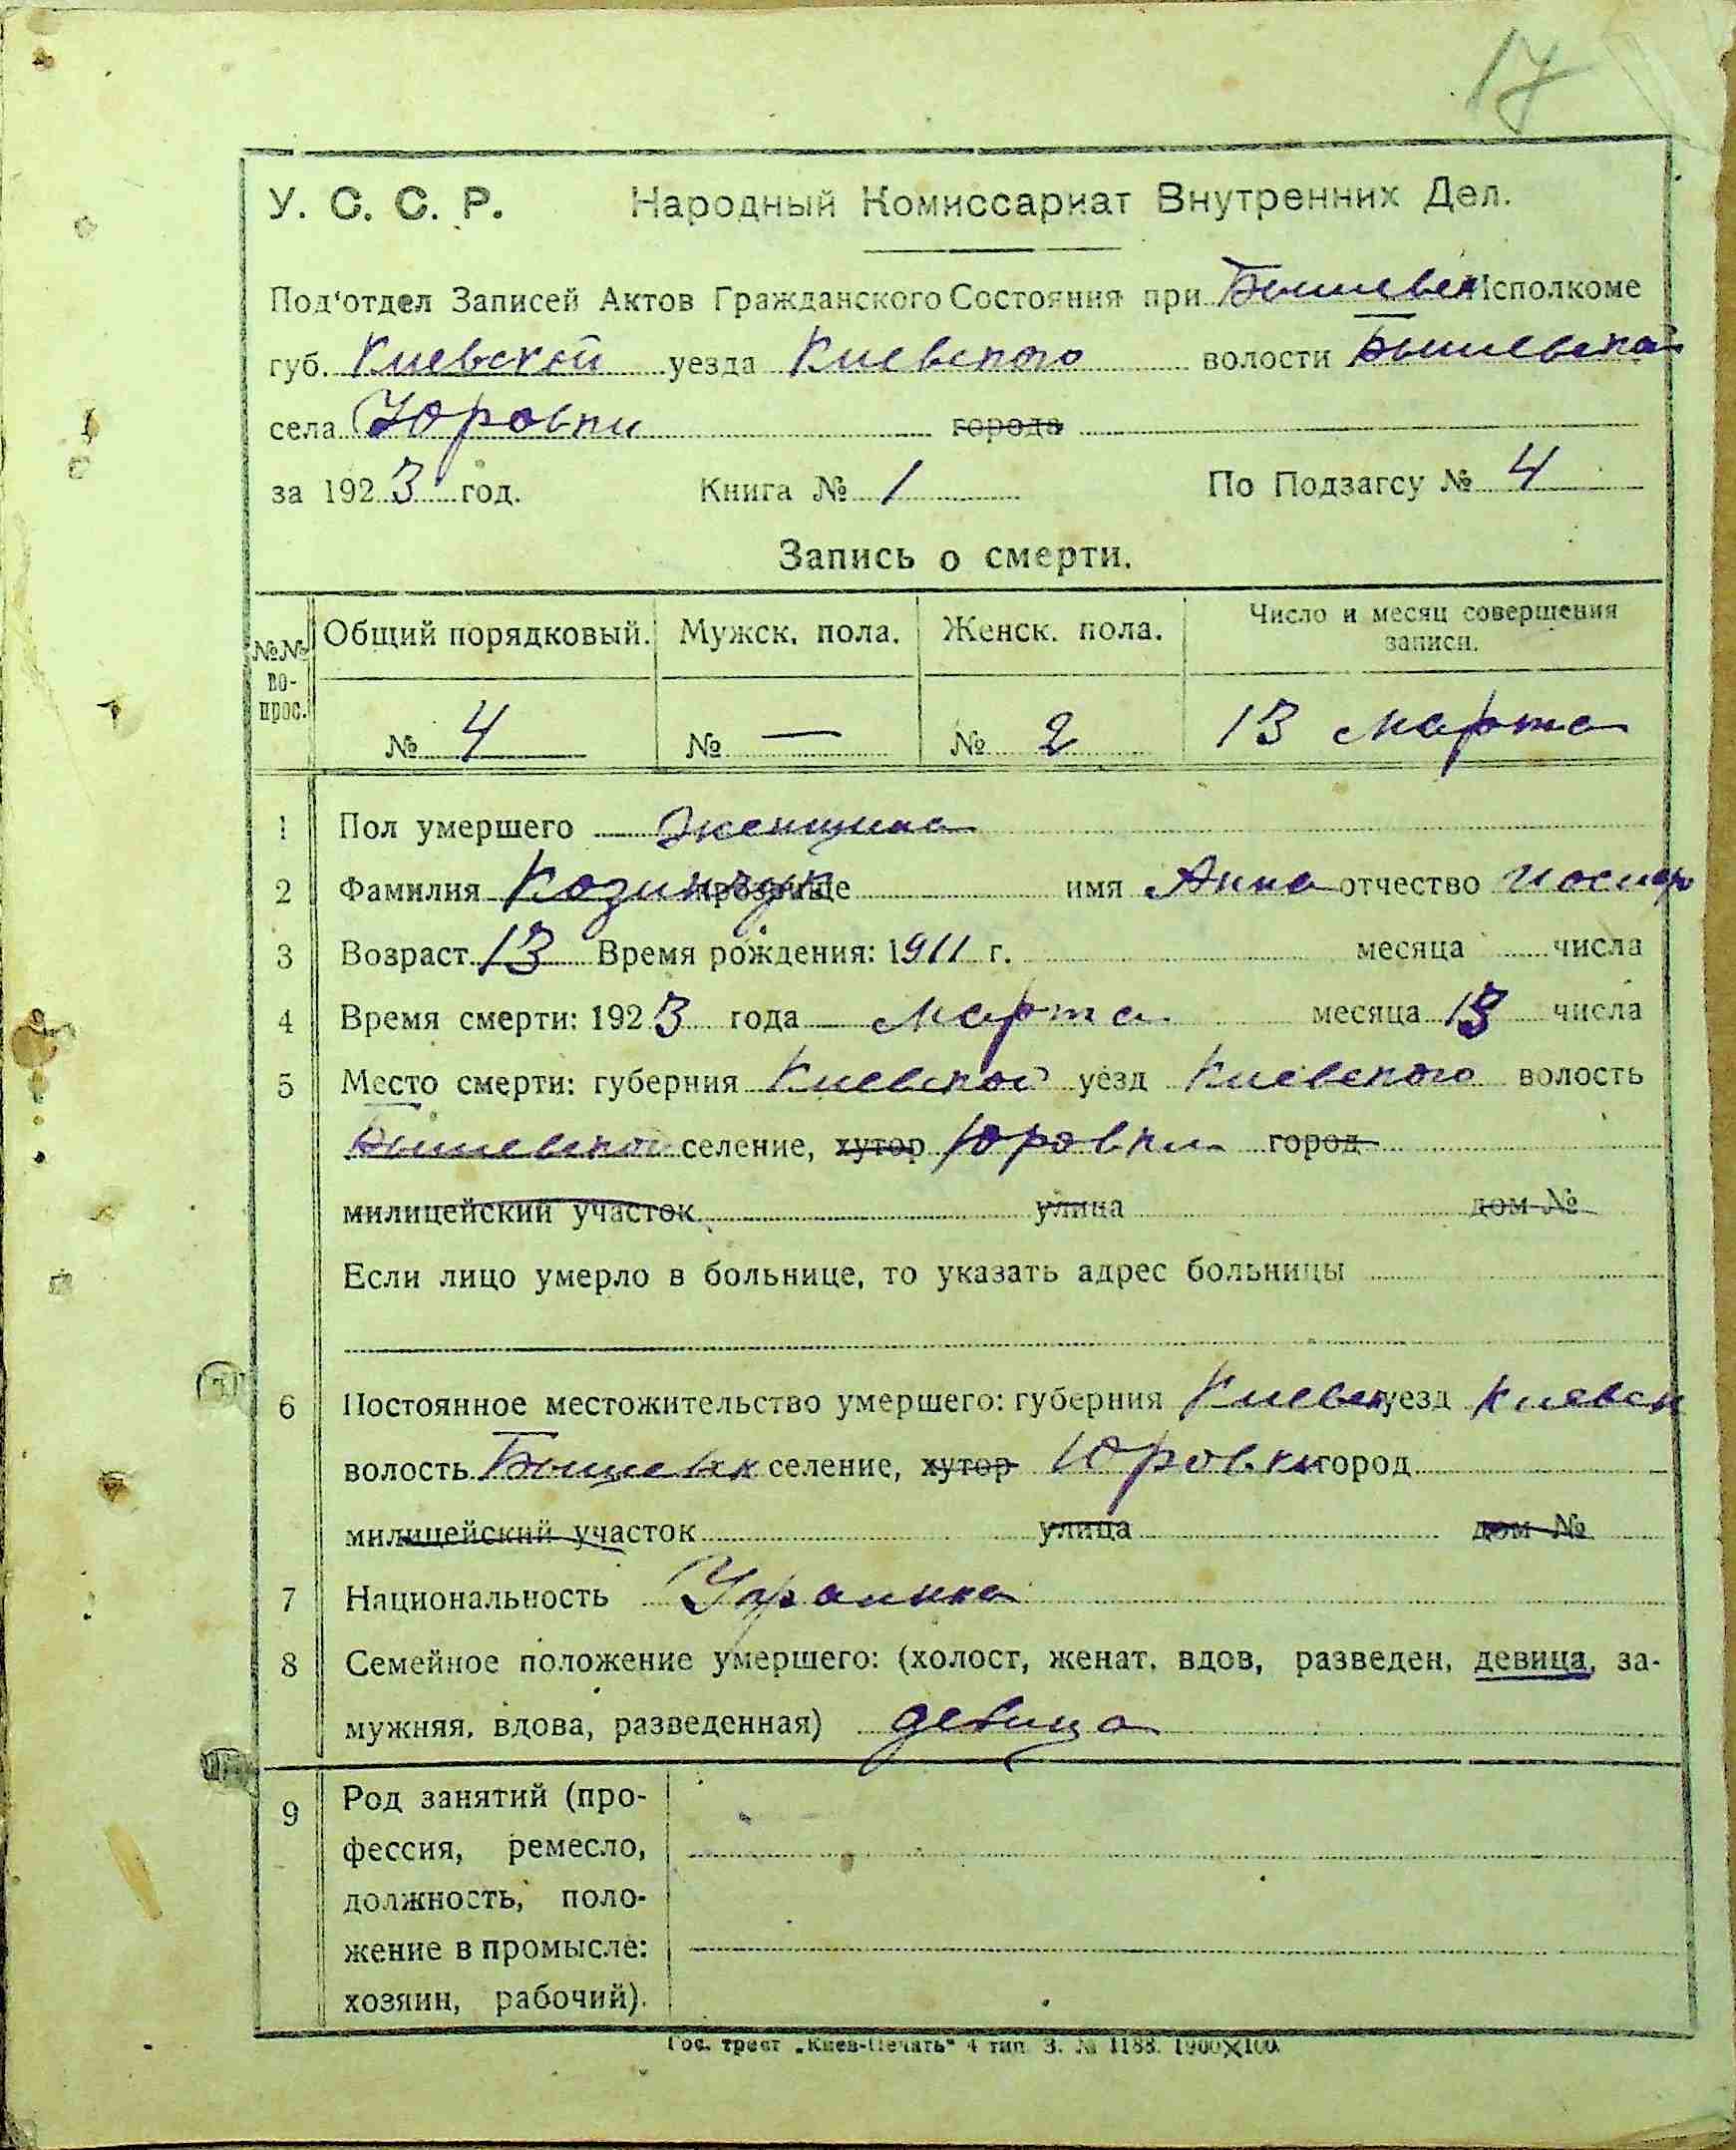 17
У. С. С. Р. Народный Комиссариат Внутренних Дел.
Под'отдел Записей Актов Гражданского Состояния при Бышевск Исполкоме
губ. Киевской уезда Киевского волости Бышевской
села Юровки города
за 1923 год. Книга № 1 По Подзагсу № 4
Запись о смерти.
№№ во-прос. Общий порядковый. Мужск. пола. Женск. пола. Число и месяц совершения записи.
№ 4 № — № 2 13 марта
1 Пол умершего женщина
2 Фамилия прозвище имя Анна отчество
3 Возраст 13 Время рождения: 1911 г. месяца числа
4 Время смерти: 1923 года марта месяца 13 числа
5 Место смерти: губерния Киевской уезд Киевского волость
Бышевской селение, хутор Юровки город
милицейский участок улица дом №
Если лицо умерло в больнице, то указать адрес больницы
6 Постоянное местожительство умершего: губерния Киевск уезд Киевск
волость Бышевск селение, хутор Юровки город
милицейский участок улица дом №
7 Национальность
8 Семейное положение умершего: (холост, женат, вдов, разведен, девица, за-
мужняя, вдова, разведенная) девица
9 Род занятий (про-
фессия, ремесло,
должность, поло-
жение в промысле:
хозяин, рабочий).
Гос. трест „Киев-Печать" 4 тип. З. № 1188. 1900×100.